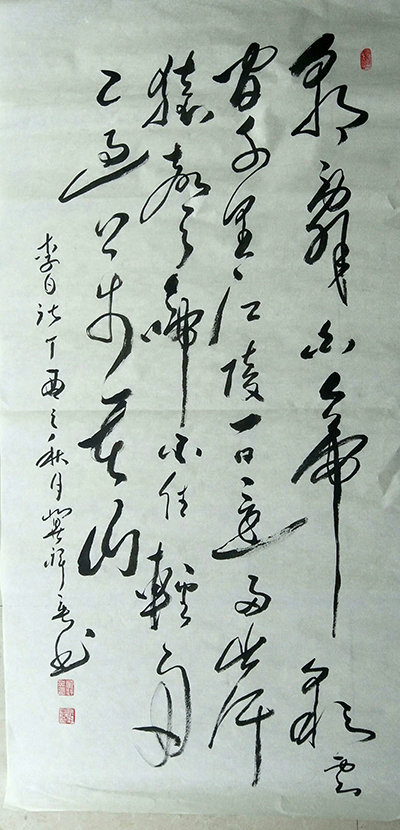 朝辭白帝彩雲
間千里江陵一日還兩岸
猿聲啼不住輕舟
已過萬重山
李白詩丁酉之秋月冀